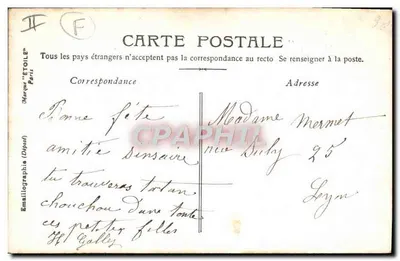 II F
CARTE POSTALE
Tous les pays étrangers n'acceptent pas la correspondance au recto Se renseigner à la poste.
Correspondance
Adresse
Bonne fête
amitié sinsaire
tu trouveras
chouchou dans toute
ces petites filles
H Galley
Madame Mermet
rue Sully 25
Lyon
Emaillographie (Déposé) (Marque "ETOILE" Paris
CPARAMA